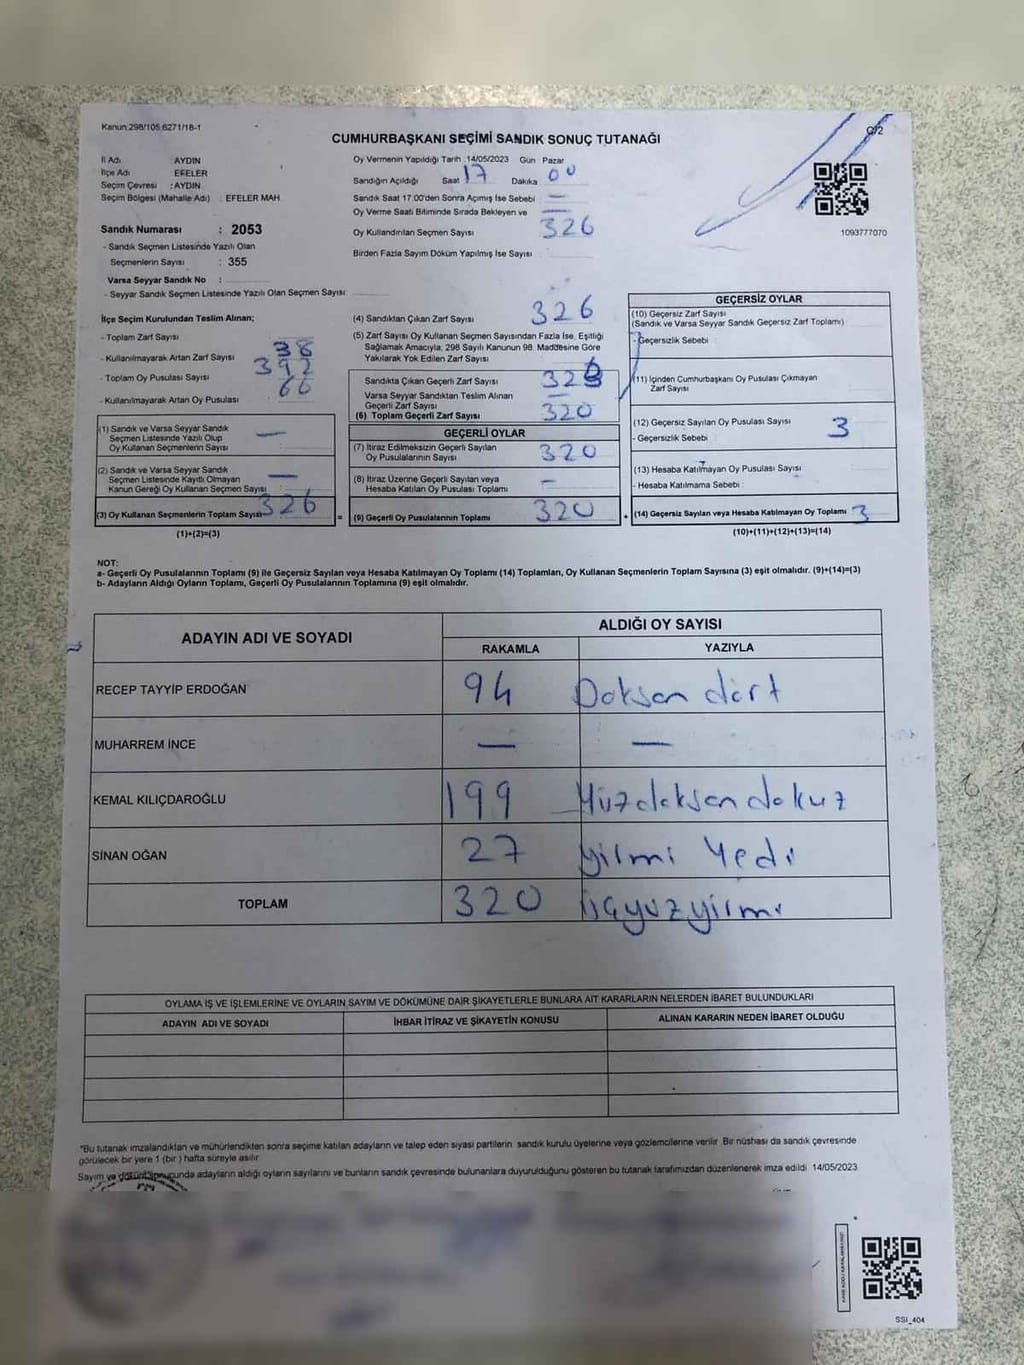 Kanun:298/105,6271/18-1
C/2
CUMHURBAŞKANI SEÇİMİ SANDIK SONUÇ TUTANAĞI
İl Adı AYDIN
İlçe Adı EFELER
Seçim Çevresi : AYDIN
Seçim Bölgesi (Mahalle Adı) : EFELER MAH
Sandık Numarası : 2053
- Sandık Seçmen Listesinde Yazılı Olan
Seçmenlerin Sayısı : 355
Varsa Seyyar Sandık No :
- Seyyar Sandık Seçmen Listesinde Yazılı Olan Seçmen Sayısı:
Oy Vermenin Yapıldığı Tarih 14/05/2023 Gün Pazar
Sandığın Açıldığı Saat 17 Dakika 00
Sandık Saat 17.00'den Sonra Açmış İse Sebebi —
Oy Verme Saati Bitiminde Sırada Bekleyen ve —
Oy Kullandırılan Seçmen Sayısı 326
Birden Fazla Sayım Döküm Yapılmış İse Sayısı
1093777070
İlçe Seçim Kurulundan Teslim Alınan;
- Toplam Zarf Sayısı
- Kullanılmayarak Artan Zarf Sayısı 38
- Toplam Oy Pusulası Sayısı 392
- Kullanılmayarak Artan Oy Pusulası 66
(1) Sandık ve Varsa Seyyar Sandık
Seçmen Listesinde Yazılı Olup
Oy Kullanan Seçmenlerin Sayısı —
(2) Sandık ve Varsa Seyyar Sandık
Seçmen Listesinde Kayıtlı Olmayan
Kanun Gereği Oy Kullanan Seçmen Sayısı —
(3) Oy Kullanan Seçmenlerin Toplam Sayısı 326
(1)+(2)=(3)
(4) Sandıktan Çıkan Zarf Sayısı 326
(5) Zarf Sayısı Oy Kullanan Seçmen Sayısından Fazla İse, Eşitliği
Sağlamak Amacıyla; 298 Sayılı Kanunun 98. Maddesine Göre
Yakılarak Yok Edilen Zarf Sayısı
Sandıkta Çıkan Geçerli Zarf Sayısı
Varsa Seyyar Sandıktan Teslim Alınan
Geçerli Zarf Sayısı —
(6) Toplam Geçerli Zarf Sayısı 320
GEÇERLİ OYLAR
(7) İtiraz Edilmeksizin Geçerli Sayılan
Oy Pusulalarının Sayısı 320
(8) İtiraz Üzerine Geçerli Sayılan veya
Hesaba Katılan Oy Pusulası Toplamı —
= (9) Geçerli Oy Pusulalarının Toplamı 320
GEÇERSİZ OYLAR
(10) Geçersiz Zarf Sayısı
(Sandık ve Varsa Seyyar Sandık Geçersiz Zarf Toplamı)
- Geçersizlik Sebebi
(11) İçinden Cumhurbaşkanı Oy Pusulası Çıkmayan
Zarf Sayısı
(12) Geçersiz Sayılan Oy Pusulası Sayısı 3
- Geçersizlik Sebebi
(13) Hesaba Katılmayan Oy Pusulası Sayısı
- Hesaba Katılmama Sebebi
+ (14) Geçersiz Sayılan veya Hesaba Katılmayan Oy Toplamı 3
(10)+(11)+(12)+(13)=(14)
NOT:
a- Geçerli Oy Pusulalarının Toplamı (9) ile Geçersiz Sayılan veya Hesaba Katılmayan Oy Toplamı (14) Toplamları, Oy Kullanan Seçmenlerin Toplam Sayısına (3) eşit olmalıdır. (9)+(14)=(3)
b- Adayların Aldığı Oyların Toplamı, Geçerli Oy Pusulalarının Toplamına (9) eşit olmalıdır.
ADAYIN ADI VE SOYADI ALDIĞI OY SAYISI
RAKAMLA YAZIYLA
RECEP TAYYİP ERDOĞAN 94 Doksan dört
MUHARREM İNCE — —
KEMAL KILIÇDAROĞLU 199 Yüzdoksan dokuz
SİNAN OĞAN 27 yirmi Yedi
TOPLAM 320 üçyüzyirmi
OYLAMA İŞ VE İŞLEMLERİNE VE OYLARIN SAYIM VE DÖKÜMÜNE DAİR ŞİKAYETLERLE BUNLARA AİT KARARLARIN NELERDEN İBARET BULUNDUKLARI
ADAYIN ADI VE SOYADI İHBAR İTİRAZ VE ŞİKAYETİN KONUSU ALINAN KARARIN NEDEN İBARET OLDUĞU
*Bu tutanak imzalandıktan ve mühürlendikten sonra seçime katılan adayların ve talep eden siyasi partilerin sandık kurulu üyelerine veya gözlemcilerine verilir. Bir nüshası da sandık çevresinde
görülecek bir yere 1 (bir) hafta süreyle asılır.
Sayım ve döküm sonucunda adayların aldığı oyların sayılarını ve bunların sandık çevresinde bulunanlara duyurulduğunu gösteren bu tutanak tarafımızdan düzenlenerek imza edildi 14/05/2023
SSI_404